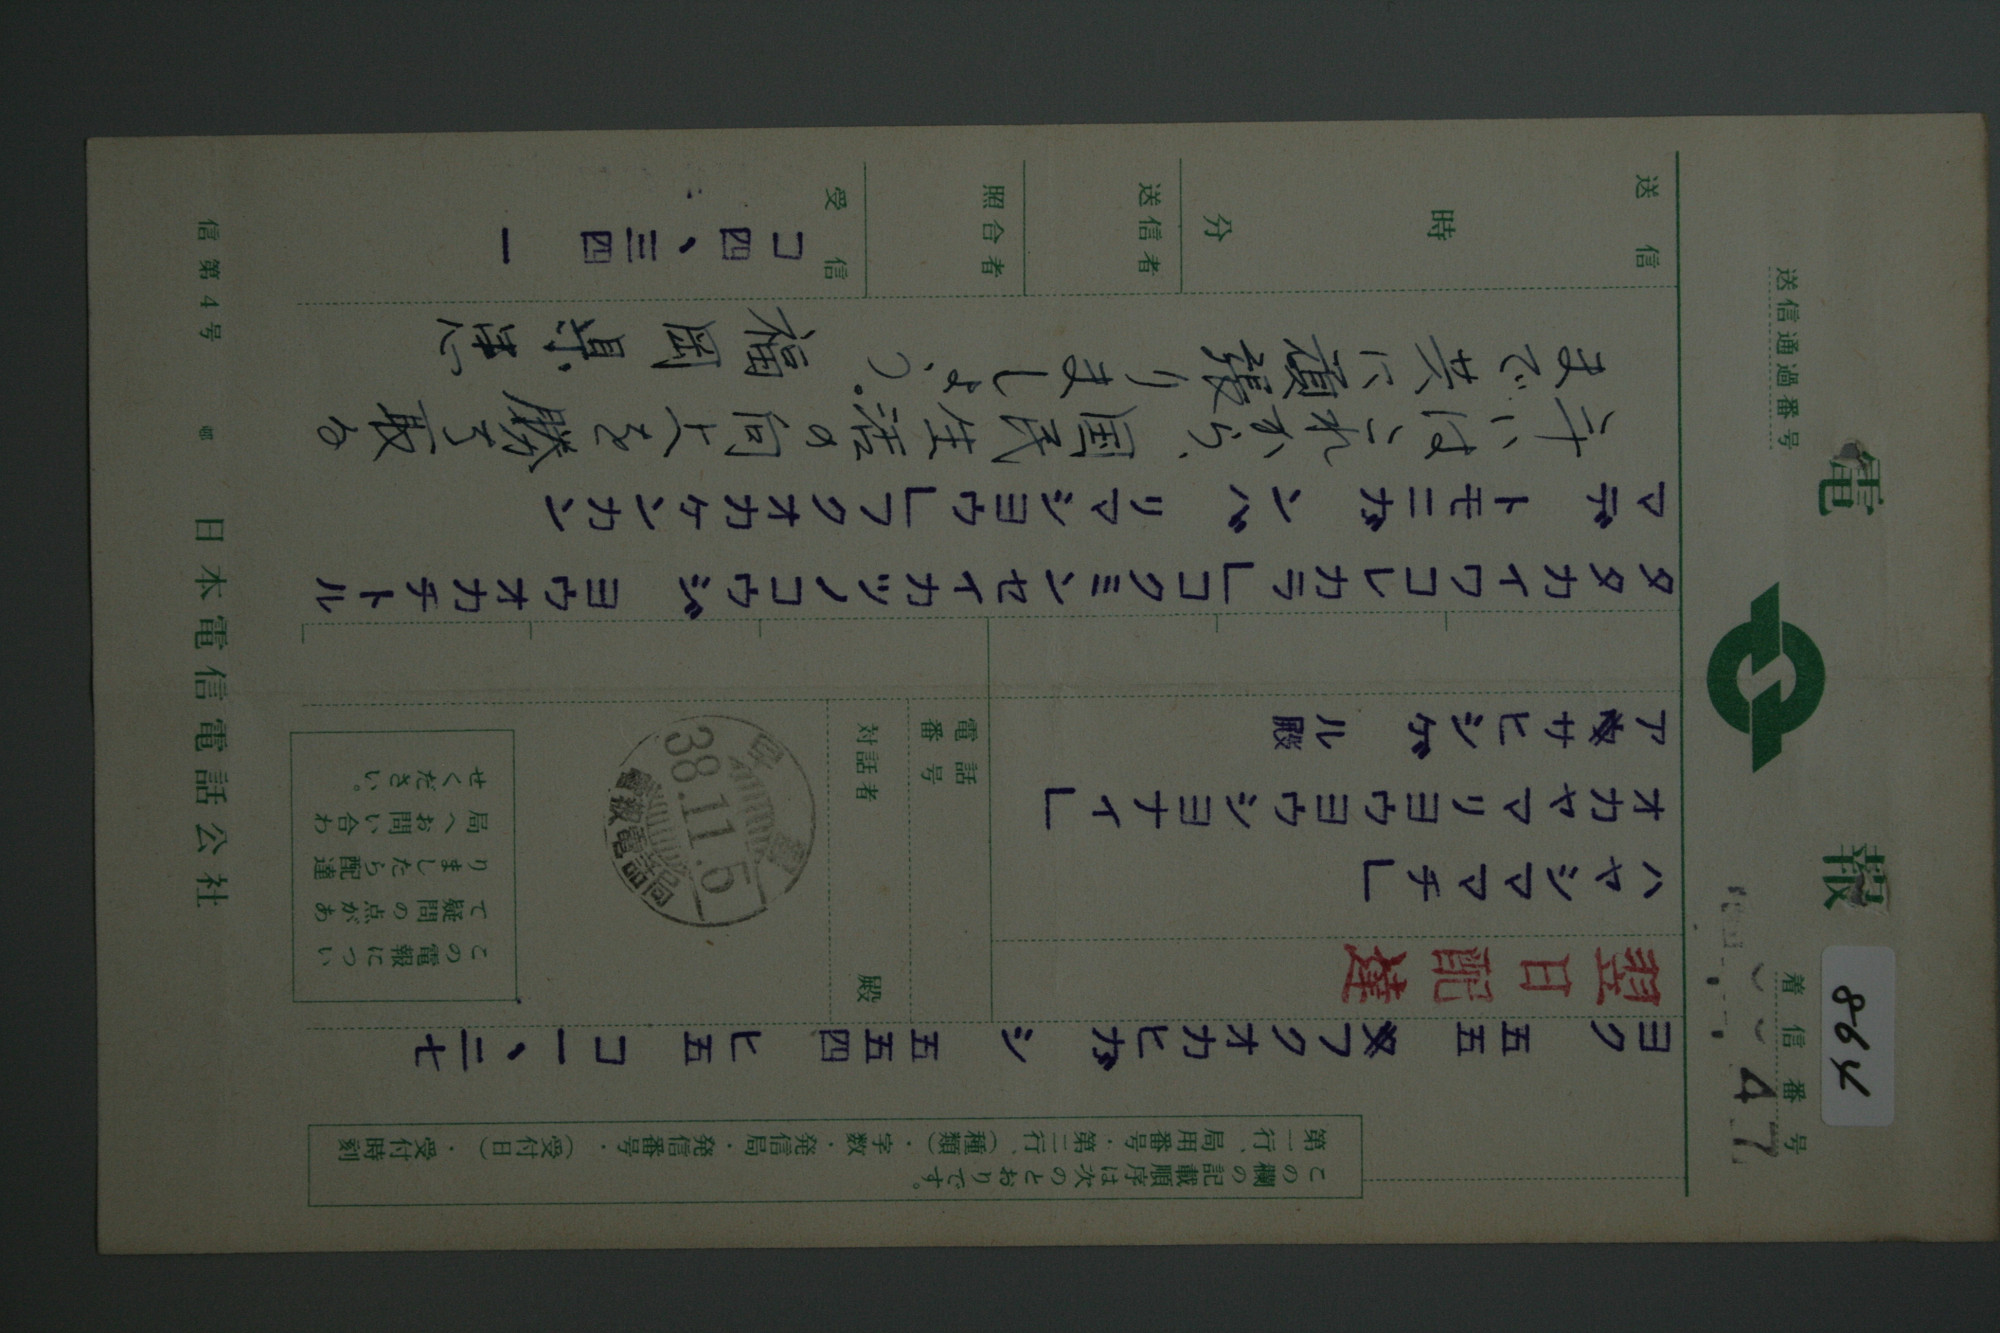 電報
864
送信通過番号
着信番号
47
この欄の記載順序は次のとおりです。
第一行、局用番号・第二行、(種類)・字数・発信局・発信番号・(受付日)・受付時刻
ヨク 五五 フクオカヒガシ 五五四 ヒ五 コ一、二七
翌日配達
ハヤシマチ」
オカヤマリヨウヨウシヨナイ」
アサヒシゲル殿
電話番号
対話者 殿
38.11.5
電報電話局
この電報につい
て疑問の点があ
りましたら配達
局へお問い合わ
せください。
タタカイワコレカラ」コクミンセイカツノコウジヨウオカチトル
マデトモニガンバリマシヨウ」フクオカケンカン
斗いはこれから、国民生活の向上を勝ち取る
まで共に頑張りましょう。福岡県患
送信
時
分
送信者
照合者
受信
コ四、三四 一
信第4号
日本電信電話公社